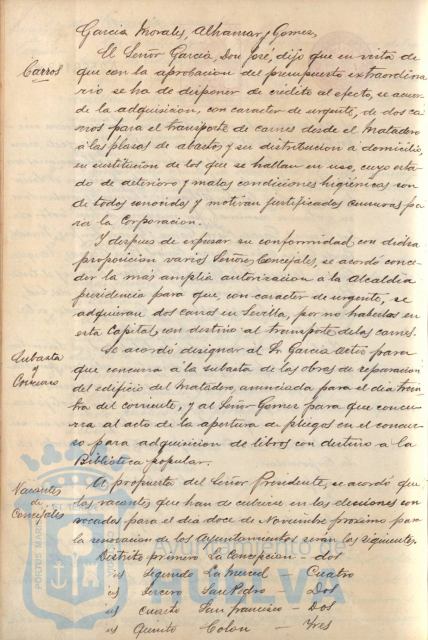 Garcia Morales, Alhamar y Gomez,
El Señor Garcia, Don José, dijo que en vista de
Carros
que con la aprobacion del presupuesto extraordina
rio se ha de disponer de crédito al efecto, se acuer
de la adquisicion, con caracter de urgente, de dos ca
rros para el transporte de carnes desde el Matadero
á las plasas de abastos y su distribucion á domicilio,
en sustitucion de los que se hallan en uso, cuyo esta
do de deterioro y malas condiciones higiénicas son
de todos conocidos y motivan justificadas censuras pa
ra la Corporacion.
Y despues de expresar su conformidad con dicha
proposicion varios Señores Concejales, se acordó conce
der la más amplia autorizacion á la Alcaldia
presidencia para que, con caracter de urgente, se
adquieran dos carros en Sevilla, por no haberlos en
esta Capital, con destino al transporte de las carnes.
Subasta
y
Concurso
Se acordó designar al Sr. Garcia para
que concurra á la subasta de las obras de reparacion
del edificio del Matadero, anunciada para el dia trein
ta del corriente, y al Señor Gomez para que concu
rra al acto de la apertura de pliegos en el concur
so para adquisicion de libros con destino á la
Biblioteca popular.
Vacantes
de
Concejales
A propuesta del Señor Presidente, se acordó que
las vacantes que han de cubrirse en las elecciones con
vocadas para el dia doce de Noviembre proximo para
la renovacion de los Ayuntamientos serán las siguientes
Distrito primero La Concepcion - dos
Segundo La Merced - Cuatro
Tercero San Pedro - Dos
cuarto San Francisco - Dos
Quinto Colon - Tres
PORTUS MARIS
HUELVA